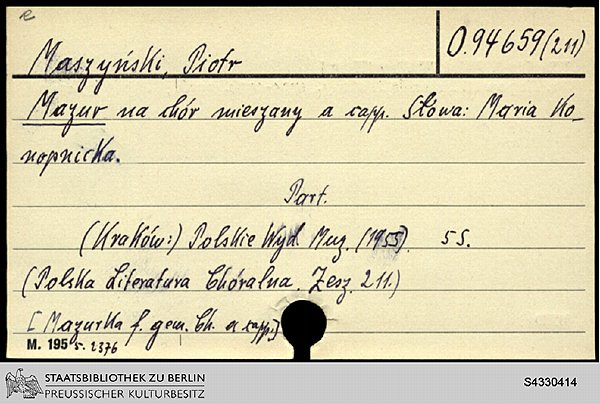 e
O. 94659(211)
Maszyński, Piotr
Mazur na chór mieszany a capp. Słowa: Maria Ko-
nopnicka.
Part.
(Kraków:) Polskie Wyd. Muz. (1955). 5 S.
(Polska Literatura Chóralna. Zesz. 211.)
[Mazurka f. gem. Ch. a capp.]
M. 1955. 2376
STAATSBIBLIOTHEK ZU BERLIN
PREUSSISCHER KULTURBESITZ
S4330414